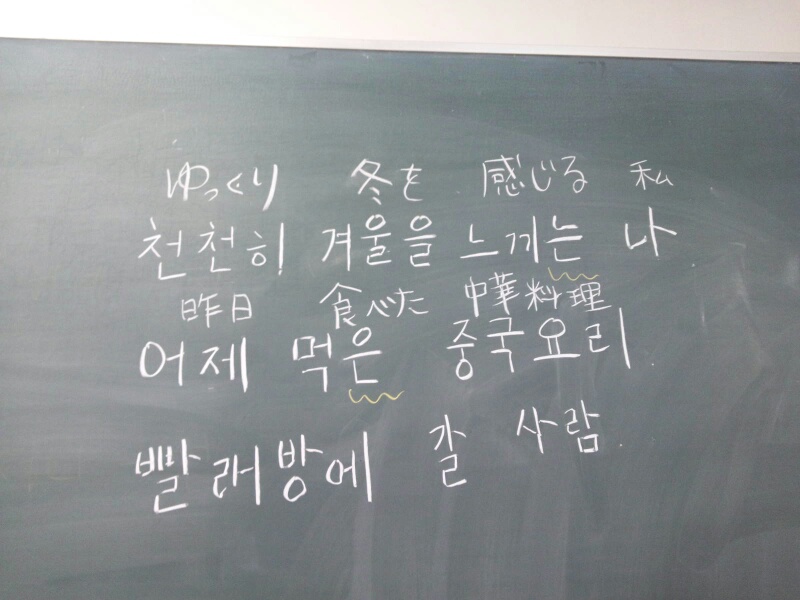 ゆっくり 冬を 感じる 私
천천히 겨울을 느끼는 나.
昨日 食べた 中華料理
어제 먹은 중국요리.
빨래방에 갈 사람.